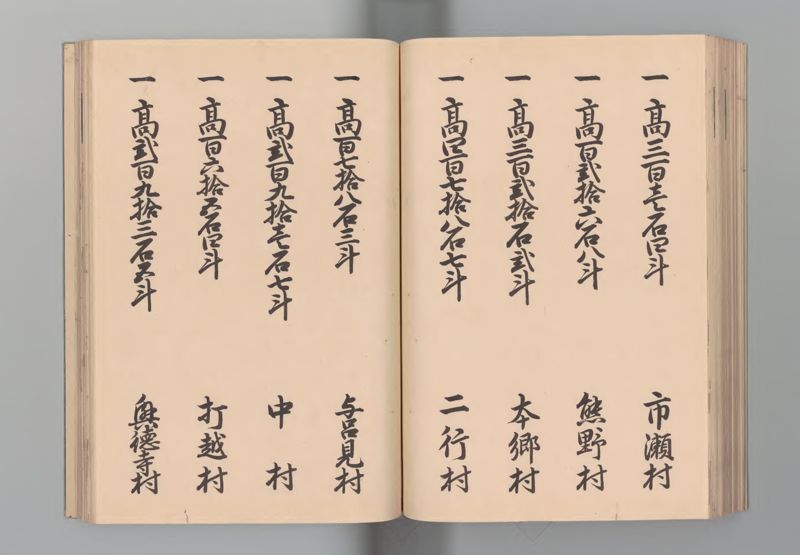 一 高三百壱石四斗 市瀬村
一 高百弐拾六石八斗 熊野村
一 高三百弐拾石弐斗 本郷村
一 高四百七拾八石七斗 二行村
一 高百七拾八石三斗 与呂見村
一 高弐百九拾壱石七斗 中村
一 高百六拾五石四斗 打越村
一 高弐百九拾三石五斗 興徳寺村